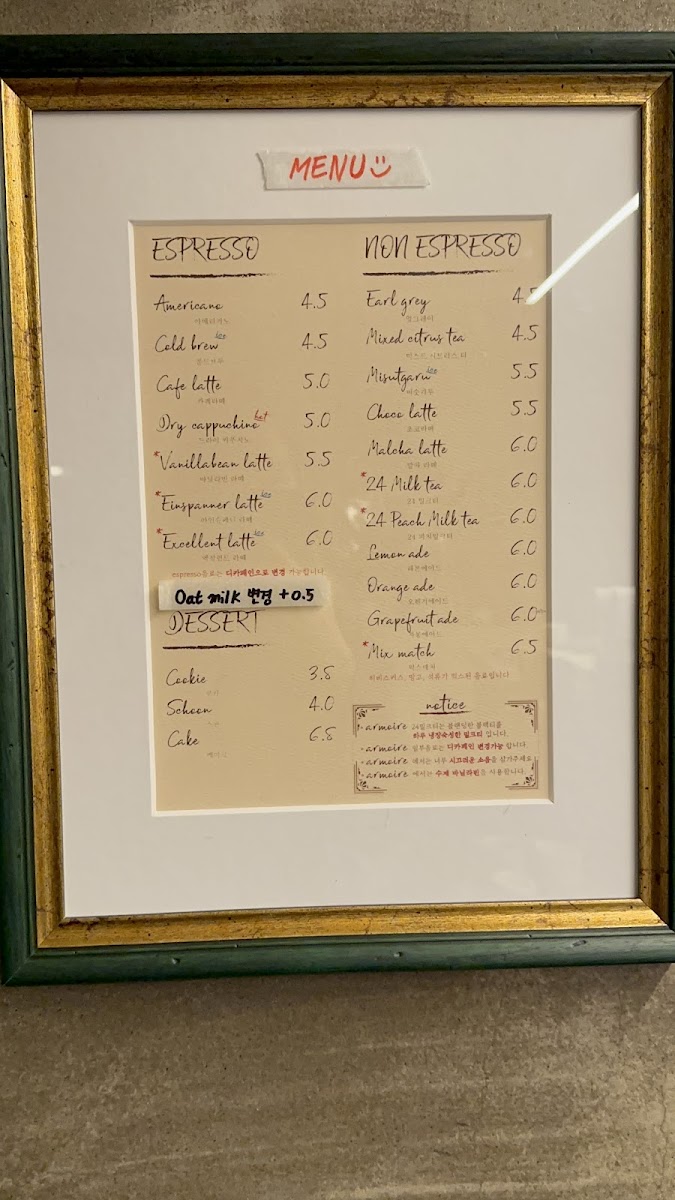 MENU
ESPRESSO
Americano 4.5
아메리카노
Cold brew ice 4.5
콜드브루
Cafe latte 5.0
카페라떼
Dry cappuchino hot 5.0
드라이 카푸치노
*Vanillabean latte 5.5
바닐라빈 라떼
*Einspanner latte ice 6.0
아인슈페너 라떼
*Excellent latte ice 6.0
엑설런트 라떼
espresso음료는 디카페인으로 변경 가능합니다
Oat milk 변경 +0.5
DESSERT
Cookie 3.8
쿠키
Schoon 4.0
스콘
Cake 6.8
케이크
NON ESPRESSO
Earl grey 4.5
얼그레이
Mixed citrus tea 4.5
믹스드 시트러스 티
Misutgaru ice 5.5
미숫가루
Choco latte 5.5
초코라떼
Malcha latte 6.0
말차 라떼
*24 Milk tea 6.0
24 밀크티
*24 Peach Milk tea 6.0
24 피치밀크티
Lemon ade 6.0
레몬에이드
Orange ade 6.0
오렌지에이드
Grapefruit ade 6.0
자몽에이드
*Mix match 6.5
믹스매치
히비스커스, 망고, 석류가 믹스된 음료입니다
notice
- armoire 24밀크티는 블렌딩한 블랙티를
하루 냉장숙성한 밀크티 입니다.
- armoire 일부음료는 디카페인 변경가능 합니다.
- armoire 에서는 너무 시끄러운 소음을 삼가주세요
- armoire 에서는 수제 바닐라빈을 사용합니다.